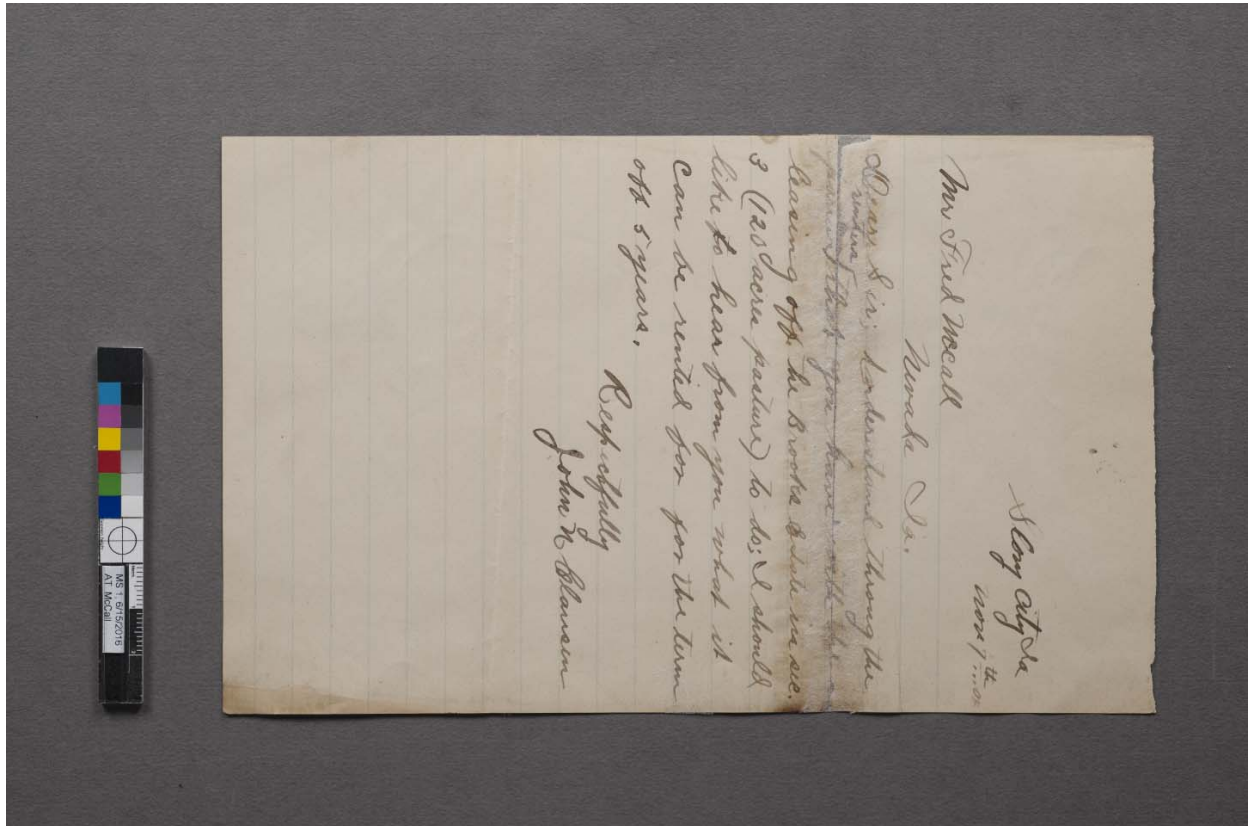 Story City Ia
Nov 9th
Mr Fred McCall
Nevada Ia.
Dear Sir; I understand through the
that you have with the
leasing off the Brooks Estate in sec.
3 (120 acres pasture) to do; I should
like to hear from you what it
can be rented for for the term
off 5 years.
Respectfully
John N Clausen
MS 1, 6/15/2016
AT McCall